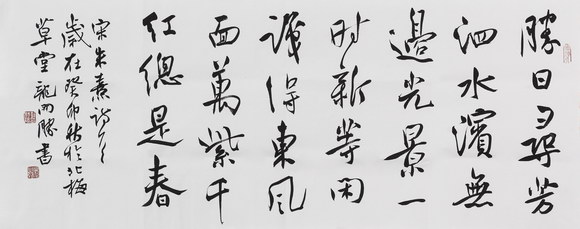 勝日尋芳
泗水濱無
邊光景一
時新等閑
識得東風
面萬紫千
紅總是春
宋朱熹詩
歲在癸卯秋於北梅
草堂龍勝書